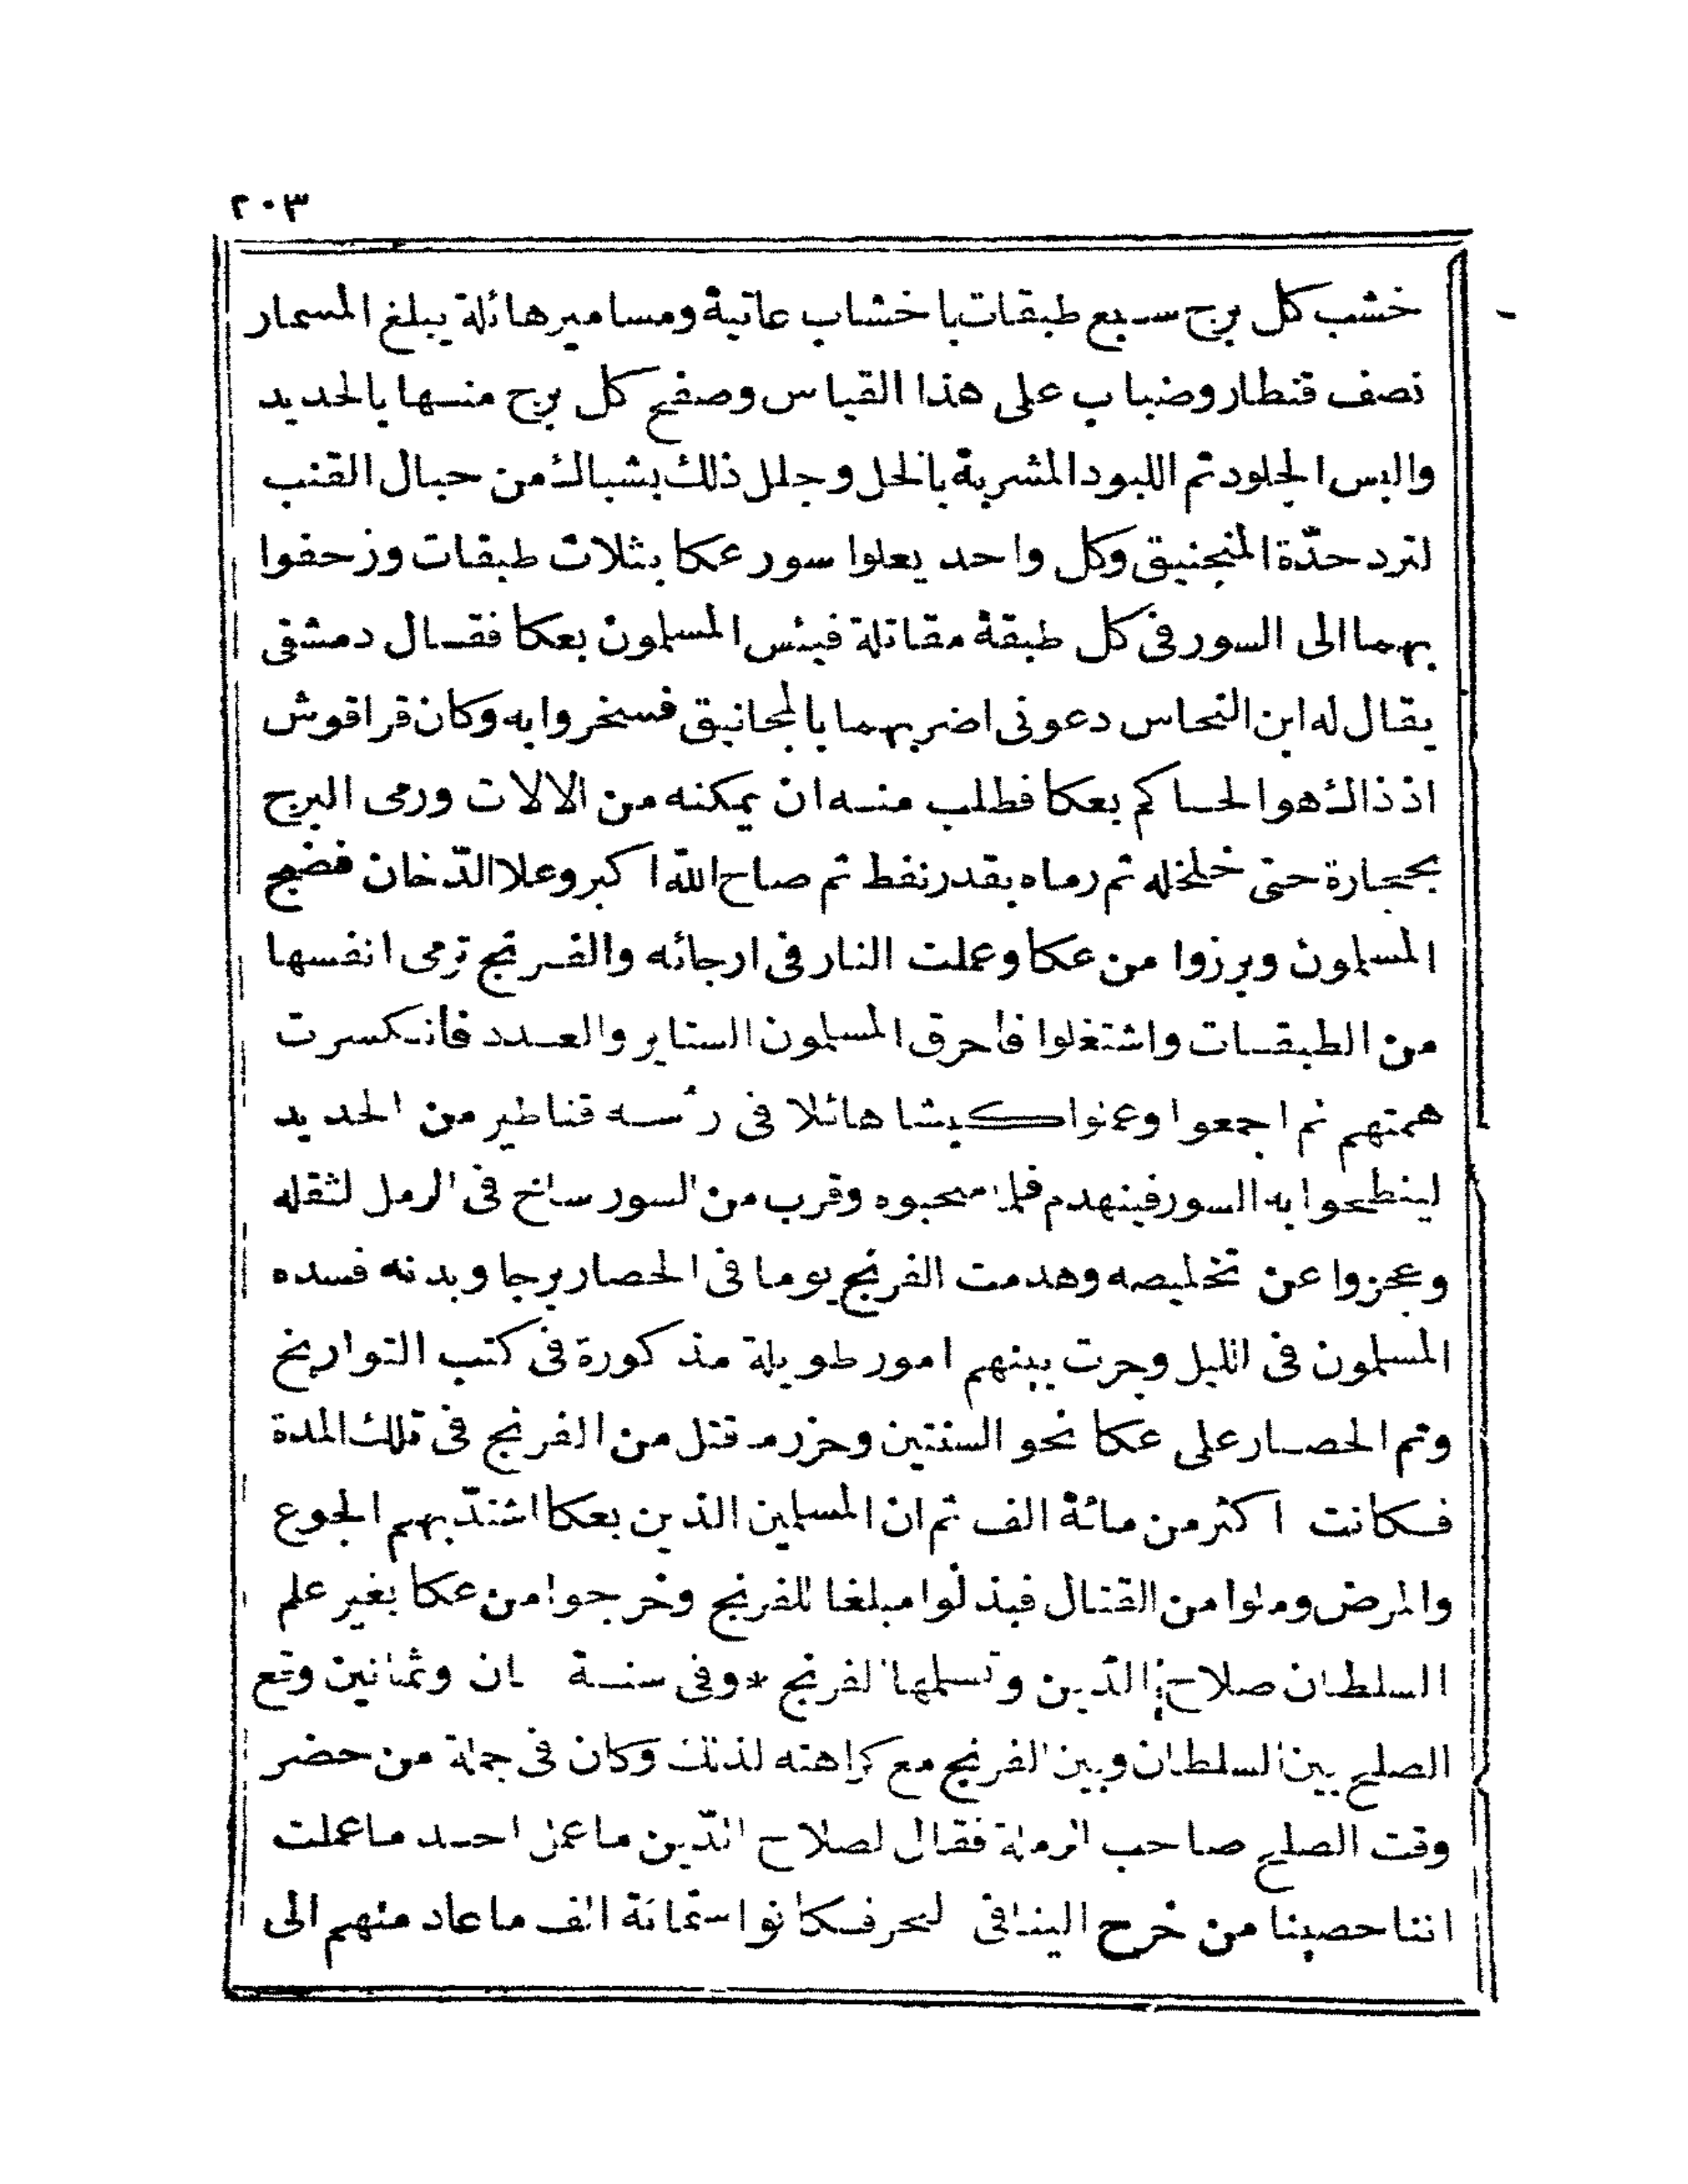 ٢٠٣
خشب كل برج سبع طبقات باخشاب عاتية ومسامير هائلة يبلغ المسمار
نصف قنطار وضباب على هذا القياس وصفح كل برج منها بالحديد
والبس الجلود ثم اللبود المشربة بالخل وجلل ذلك بشباك من حبال القنب
لترد حدّة المنجنيق وكل واحد يعلوا سور عكا بثلاث طبقات وزحفوا
بهما الى السور فى كل طبقة مقاتلة فيئس المسلمون بعكا فقال دمشقى
يقال له ابن النحاس دعونى اضربهما بالمجانيق فسخروا به وكان قراقوش
اذ ذاك هو الحاكم بعكا فطلب منه ان يمكنه من الالات ورمى البرج
بحجارة حتى خلخله ثم رماه بقدر نفط ثم صاح الله اكبر وعلا الدّخان فضج
المسلمون وبرزوا من عكا وعملت النار فى ارجائه والفرنج ترمى انفسها
من الطبقات واشتغلوا فأحرق المسلمون الستاير والعدد فأنكسرت
همتهم ثم اجمعوا وعملوا كبشا هائلا فى رأسه قناطير من الحديد
لينطحوا به السور فينهدم فلما سحبوه وقرب من السور ساخ فى الرمل لثقله
وعجزوا عن تخليصه وهدمت الفرنج يوما فى الحصار برجا وبدنه فسده
المسلمون فى الليل وجرت بينهم امور طويلة مذكورة فى كتب التواريخ
وتم الحصار على عكا نحو السنتين وحزر من قتل من الفرنج فى تلك المدة
فكانت اكثر من مائة الف ثم ان المسلمين الذين بعكا اشتدّ بهم الجوع
والمرض وملوا من القتال فبذلوا مبلغا للفرنج وخرجوا من عكا بغير علم
السلطان صلاح الدّين وتسلمها الفرنج * وفى سنة ثمان وثمانين وقع
الصلح بين السلطان وبين الفرنج مع كراهته لذلك وكان فى جملة من حضر
وقت الصلح صاحب الرملة فقال لصلاح الدّين ما عمل احد ما عملت
اننا حصينا من خرج الينا فى البحر فكانوا ستمائة الف ما عاد منهم الى